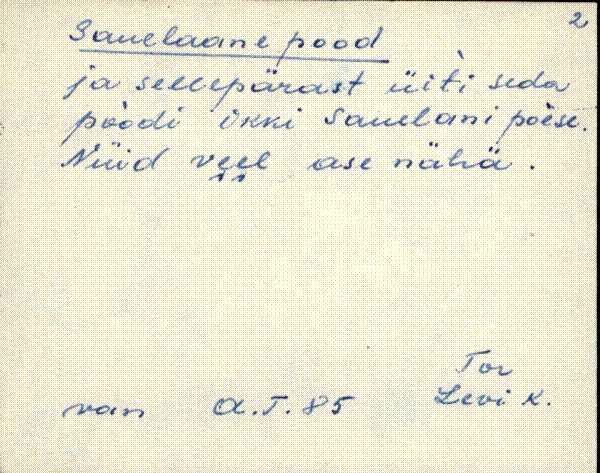 2
Sauelaane pood
ja sellepärast üiti seda
pòòdi ikki Sauelani pòèse.
Nüid veel ase nähä.
Tor
van A.T. 85 Levi K.